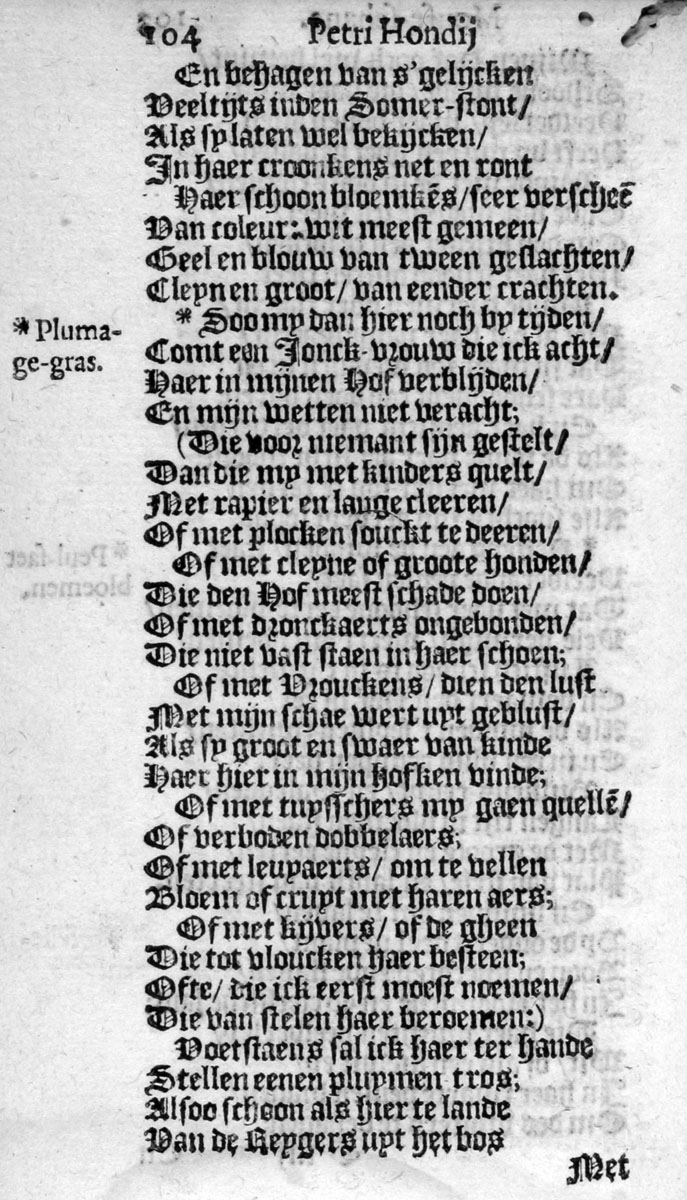 104 Petri Hondij
En behagen van s'gelijcken
Veeltijts inden Somer-stont/
Als sy laten wel bekijcken/
In haer croonkens net en ront
Haer schoon bloemkēs/seer verscheē
Van coleur: wit meest gemeen/
Geel en blouw van tween geslachten/
Cleyn en groot/ van eender crachten.
* Soo my dan hier noch by tijden/
* Pluma-
ge-gras.
Comt een Jonck-vrouw die ick acht/
Haer in mijnen Hof verblijden/
En mijn wetten niet veracht;
(Die voor niemant sijn gestelt/
Dan die my met kinders quelt/
Met rapier en lange cleeren/
Of met plocken souckt te deeren/
Of met cleyne of groote honden/
Die den Hof meest schade doen/
Of met dronckaerts ongebonden/
Die niet vast staen in haer schoen;
Of met Vrouckens/ dien den lust
Met mijn schae wert uyt geblust/
Als sy groot en swaer van kinde
Haer hier in mijn hofken vinde;
Of met tuysschers my gaen quellē/
Of verboden dobbelaers;
Of met leuyaerts/ om te vellen
Bloem of cruyt met haren aers;
Of met kijvers/ of de gheen
Die tot vloucken haer besteen;
Ofte/ die ick eerst moest noemen/
Die van stelen haer beroemen:)
Voetstaens sal ick haer ter hande
Stellen eenen pluymen tros;
Alsoo schoon als hier te lande
Van de Reygers uyt het bos
Met